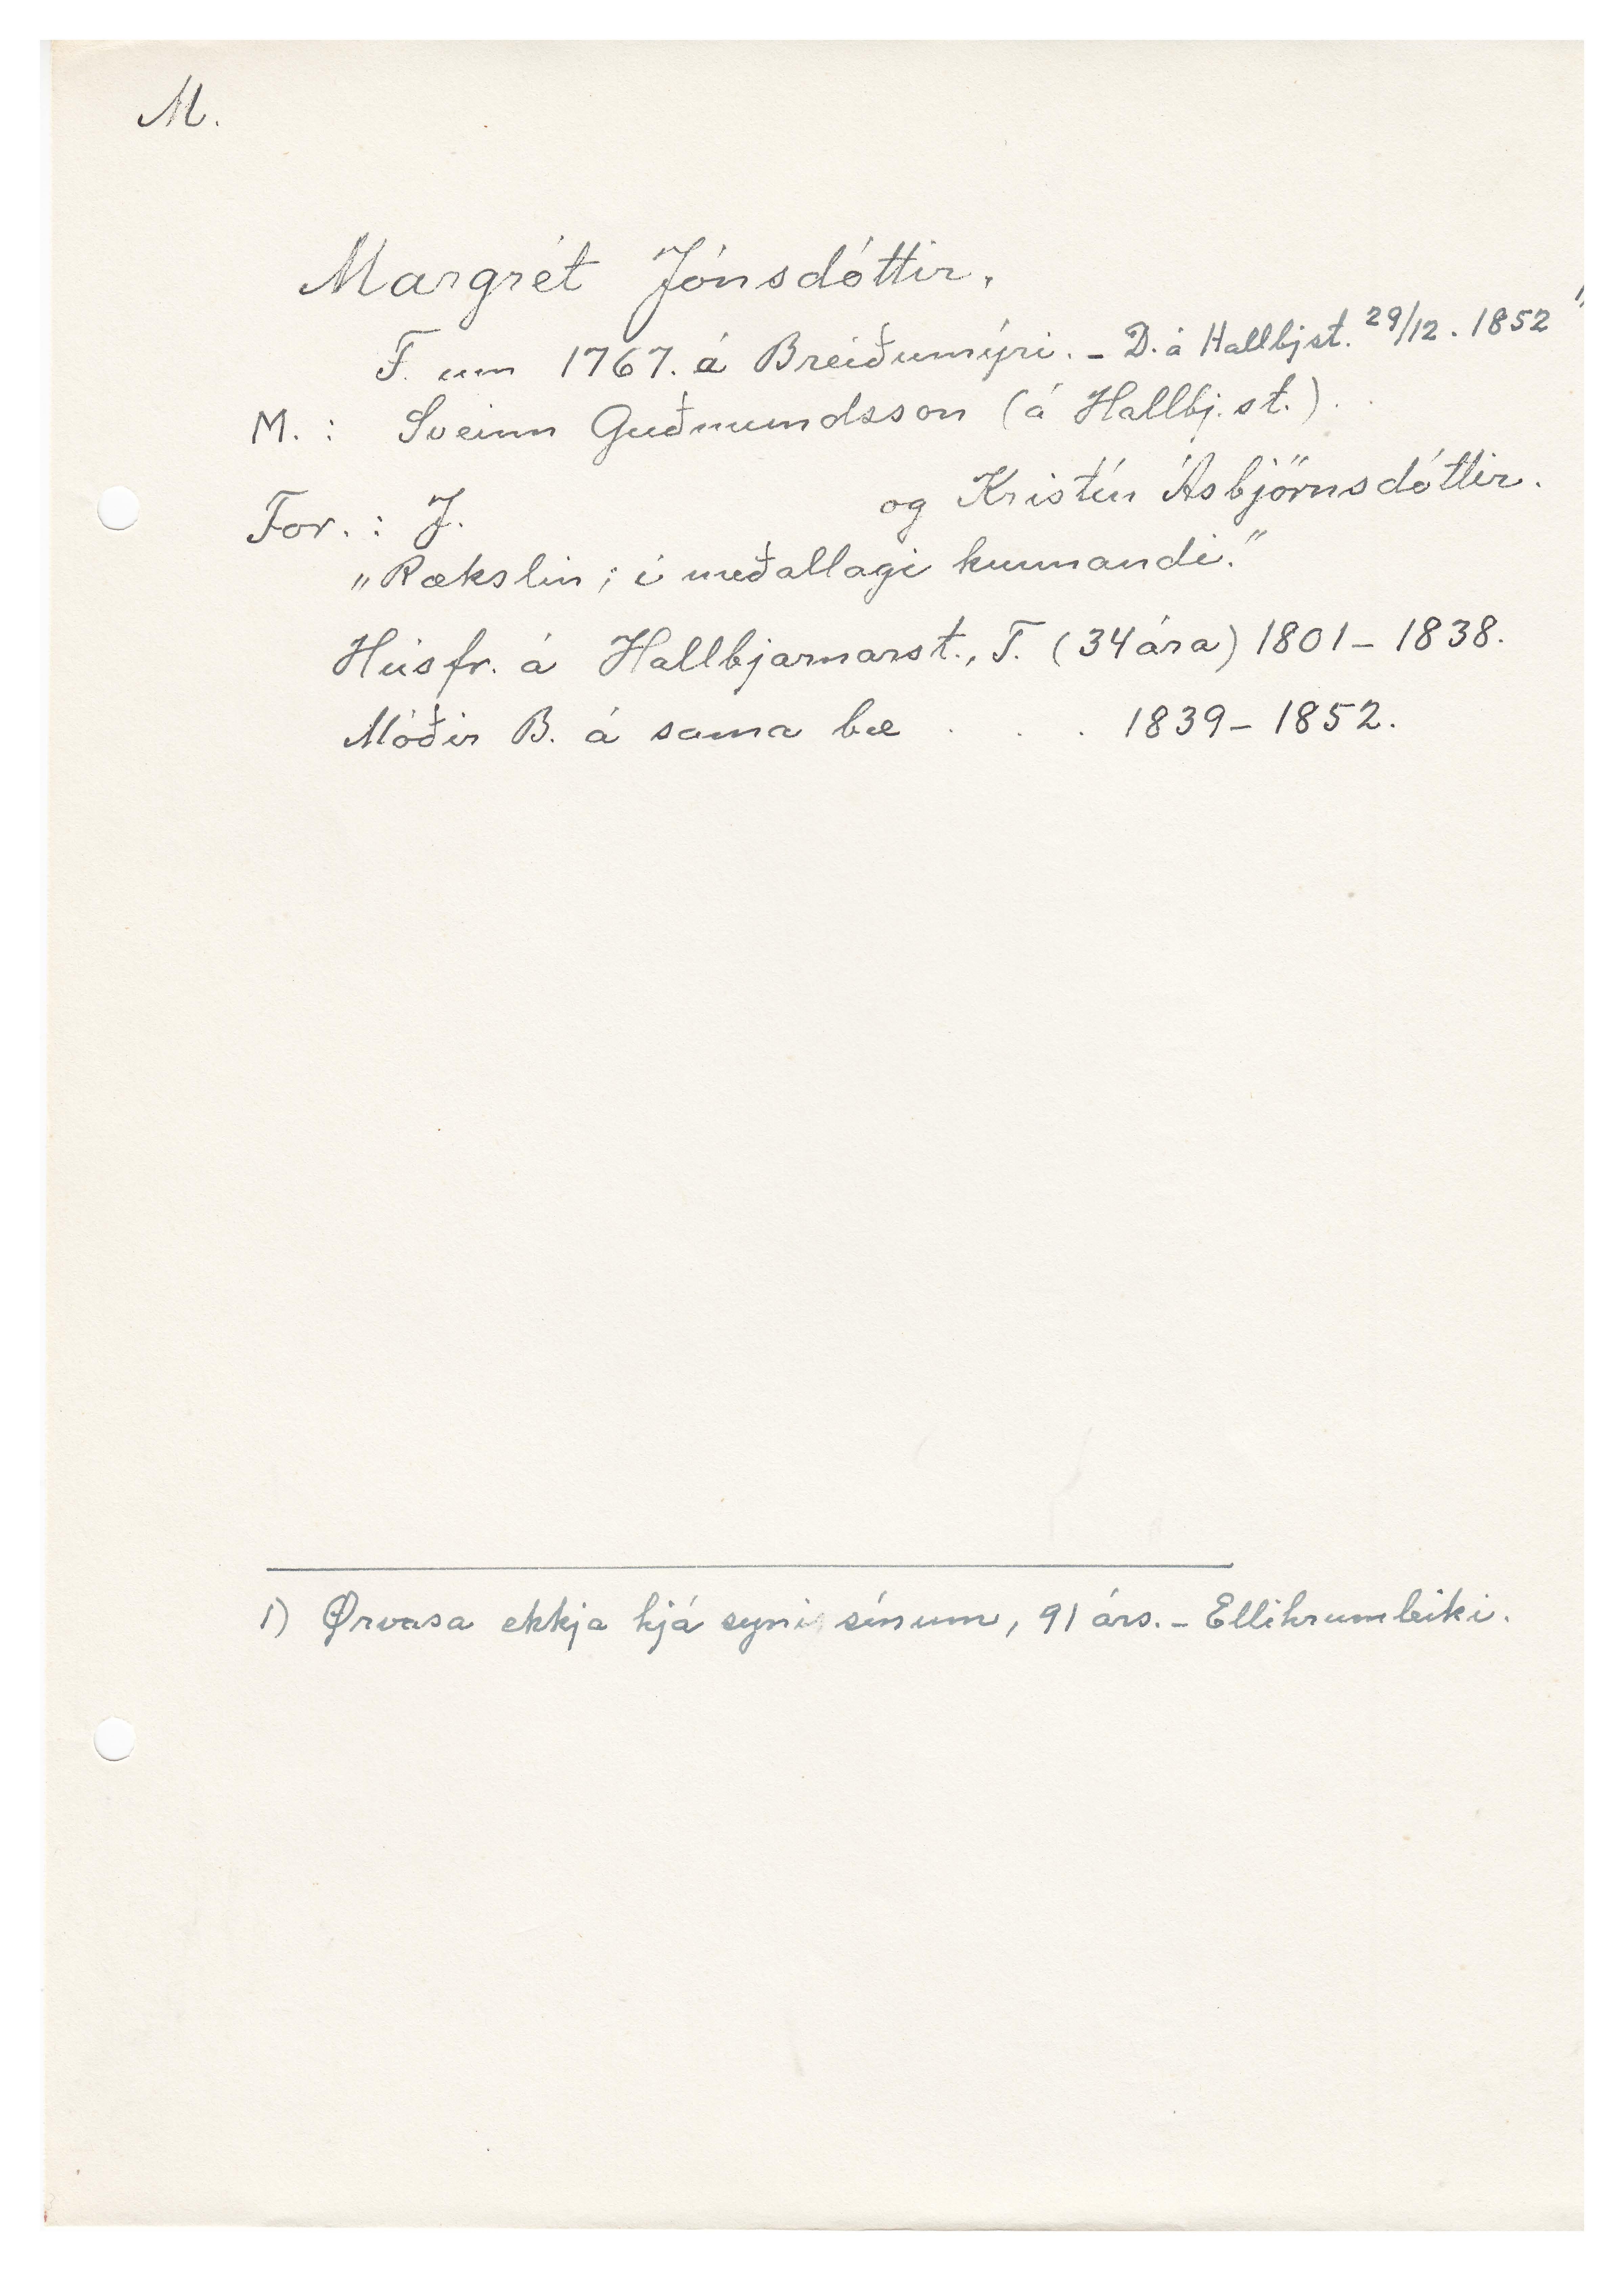 M.
Margrét Jónsdóttir.
F. um 1767. á Breiðumýri. - D. á Hallbjst. 29/12. 1852 1)
M. : Sveinn Guðmundsson (á Hallbj.st.)..
For. : J. og Kristín Ásbjörnsdóttir.
„Rækslin; í meðallagi kunnandi."
Húsfr. á Hallbjarnarst., T. (34 ára) 1801 - 1838.
Móðir B. á sama bæ . . . 1839 - 1852.
1) Ørvasa ekkja hjá syni sínum, 91 árs. - Ellihrumleiki.